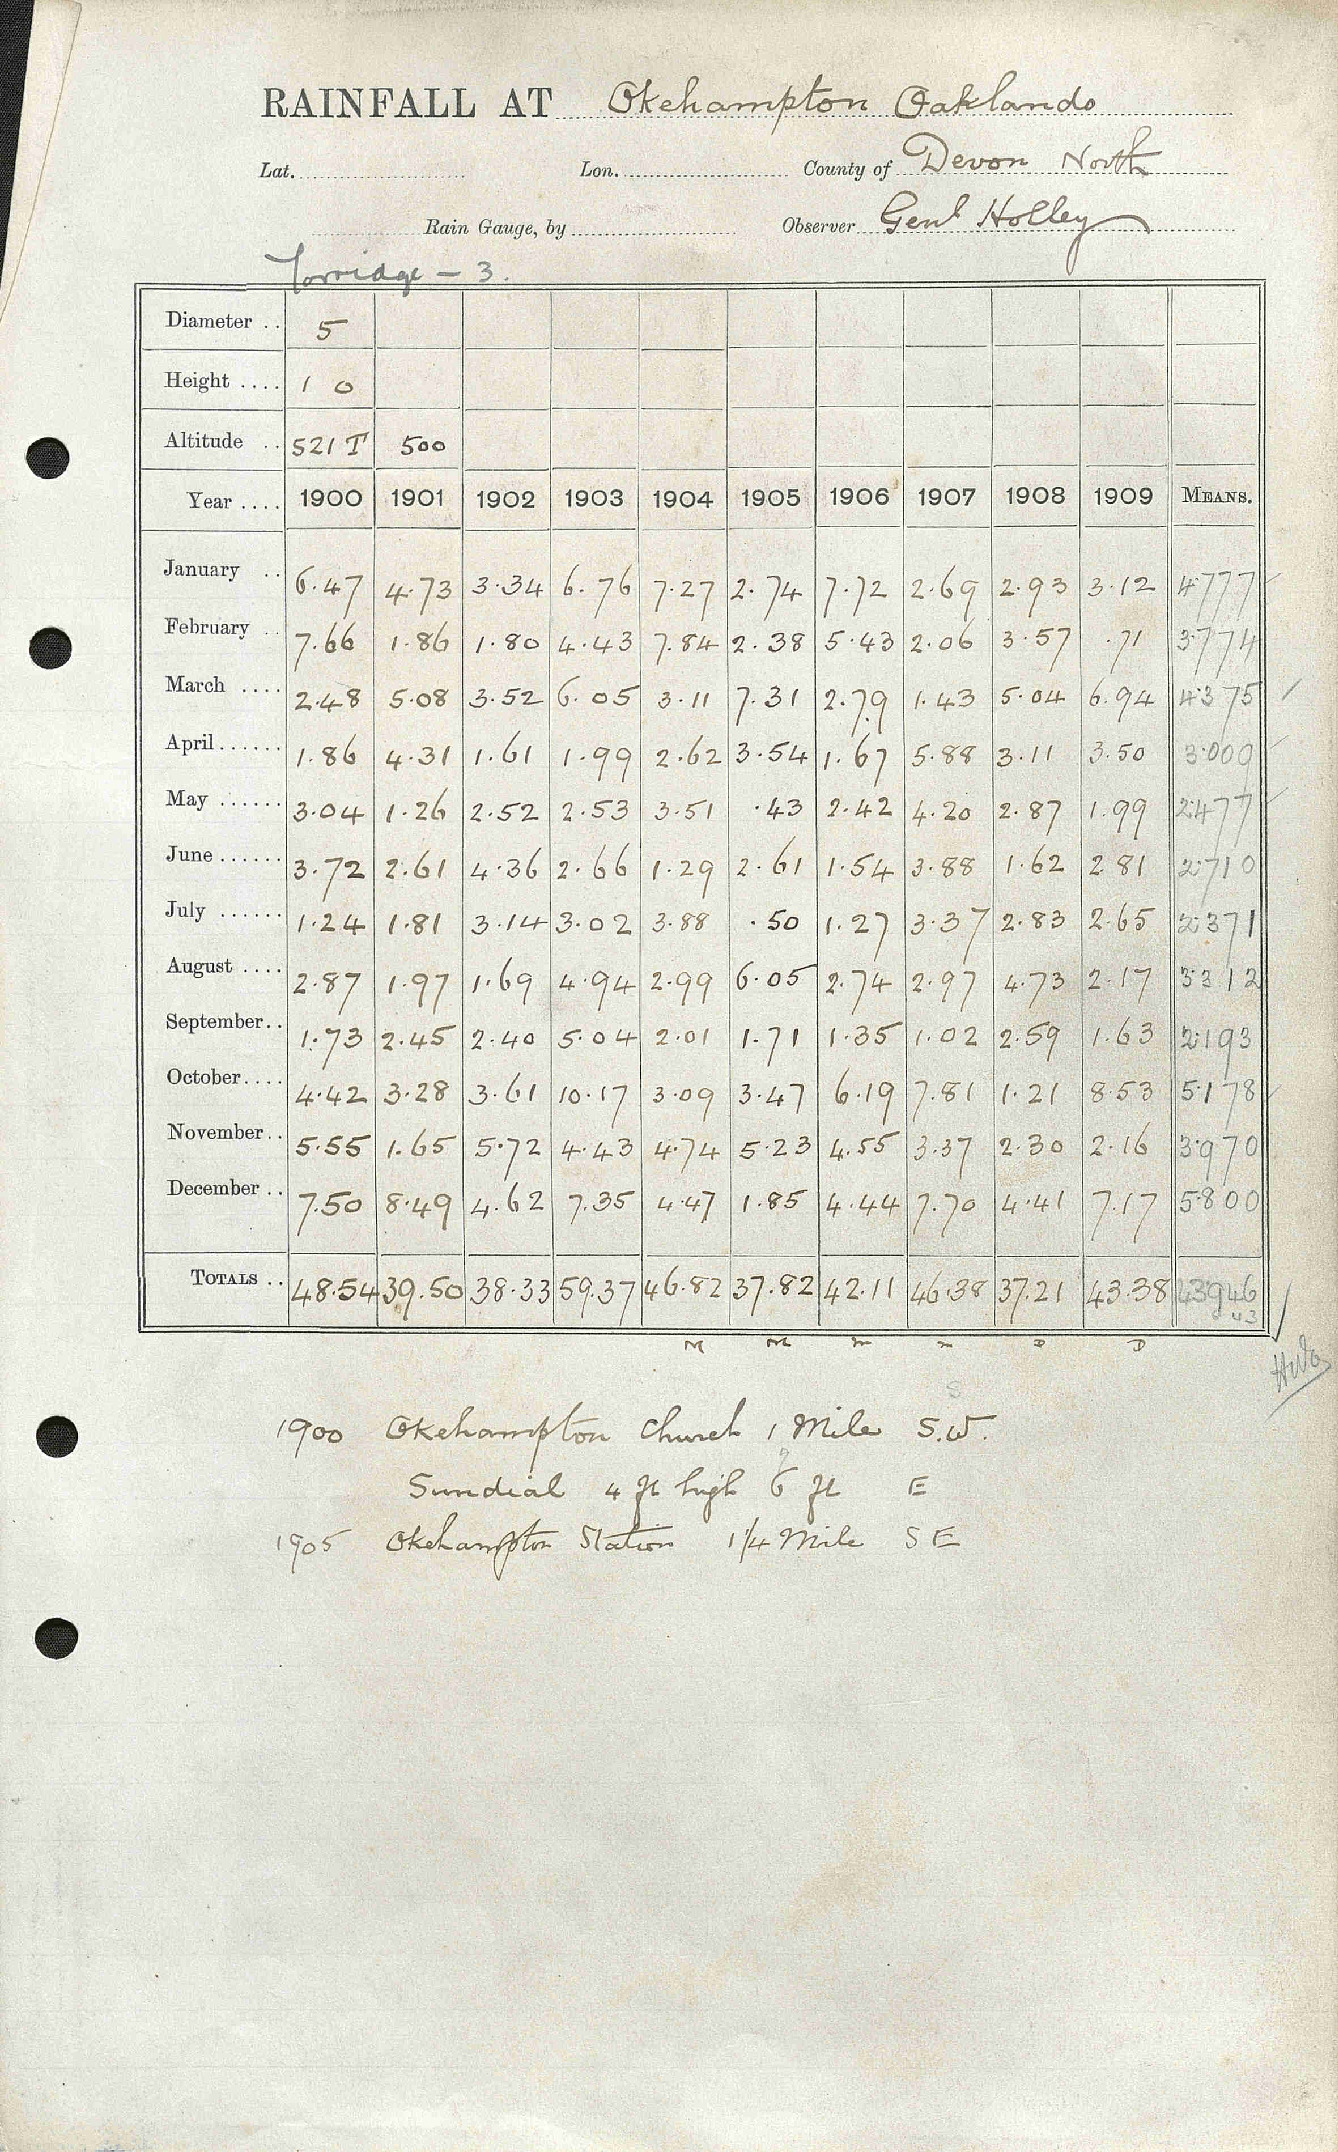 RAINFALL AT Okehampton Oaklands
Lat. Lon. County of Devon North
Rain Gauge, by Observer Genl Holley
Torridge - 3.
Diameter .. 5
Height .... 1 0
Altitude .. 521 T 500
Year .... 1900 1901 1902 1903 1904 1905 1906 1907 1908 1909 MEANS.
January .. 6.47 4.73 3.34 6.76 7.27 2.74 7.72 2.69 2.93 3.12 4.777
February .. 7.66 1.86 1.80 4.43 7.84 2.38 5.43 2.06 3.57 .71 3.774
March .... 2.48 5.08 3.52 6.05 3.11 7.31 2.79 1.43 5.04 6.94 4.375
April...... 1.86 4.31 1.61 1.99 2.62 3.54 1.67 5.88 3.11 3.50 3.009
May ...... 3.04 1.26 2.52 2.53 3.51 .43 2.42 4.20 2.87 1.99 2.477
June ...... 3.72 2.61 4.36 2.66 1.29 2.61 1.54 3.88 1.62 2.81 2.710
July ...... 1.24 1.81 3.14 3.02 3.88 .50 1.27 3.37 2.83 2.65 2.371
August .... 2.87 1.97 1.69 4.94 2.99 6.05 2.74 2.97 4.73 2.17 3.312
September.. 1.73 2.45 2.40 5.04 2.01 1.71 1.35 1.02 2.59 1.63 2.193
October.... 4.42 3.28 3.61 10.17 3.09 3.47 6.19 7.81 1.21 8.53 5.178
November.. 5.55 1.65 5.72 4.43 4.74 5.23 4.55 3.37 2.30 2.16 3.970
December .. 7.50 8.49 4.62 7.35 4.47 1.85 4.44 7.70 4.41 7.17 5.800
TOTALS .. 48.54 39.50 38.33 59.37 46.82 37.82 42.11 46.38 37.21 43.38 43.946
43
M M m D D
1900 Okehampton Church 1 Mile S.W.
Sundial 4 ft high 6 ft E
1905 Okehampton Station 1 1/4 Mile S E